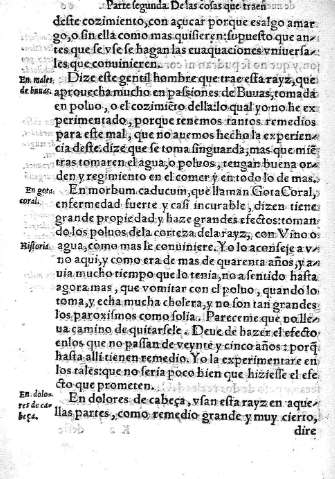 Parte segunda. De las cosas que traen
deste cozimiento, con açucar porque es algo amar
go, o sin ella como mas quisieren: supuesto que an-
tes que se vse se hagan las euaquaciones vniuersa-
les que conuinieren.
En males de buuas.
Dize este gentil hombre que trae esta rayz, que
aprouecha mucho en passiones de Buuas, tomada
en poluo, o el cozimiẽto della: lo qual yo no he ex
perimentado, porque tenemos tantos remedios
para este mal, que no auemos hecho la experien
cia deste. dize que se toma sin guarda, mas que miẽ
tras tomaren el agua, o poluos, tengan buena or-
den y regimiento en el comer y en todo lo de mas.
En gota coral.
En morbum caducum, que llamã Gota Coral,
enfermedad fuerte y casi incurable, dizen tiene
grande propiedad y haze grandes efectos: toman
do los poluos de la corteza de la rayz, con Vino o
Historia.
agua, como mas le conuiniere. Yo lo aconseje a v-
no aqui, y como era de mas de quarenta años, y a-
uia mucho tiempo que lo tenia, no a sentido hasta
agora mas, que vomitar con el poluo, quando lo
toma, y echa mucha cholera, y no son tan grandes
los paroxismos como solia. Pareceme que no lle-
ua camino de quitarsele. Deue de hazer el efecto
en los que no passan de veynte y cinco años: porq̃
hasta alli tienen remedio. Yo la experimentare en
los tales: que no seria poco bien que hiziesse el efe
cto que prometen.
En dolores de cabeça.
En dolores de cabeça, vsan esta rayz en aque-
llas partes, como remedio grande y muy cierto,
dire